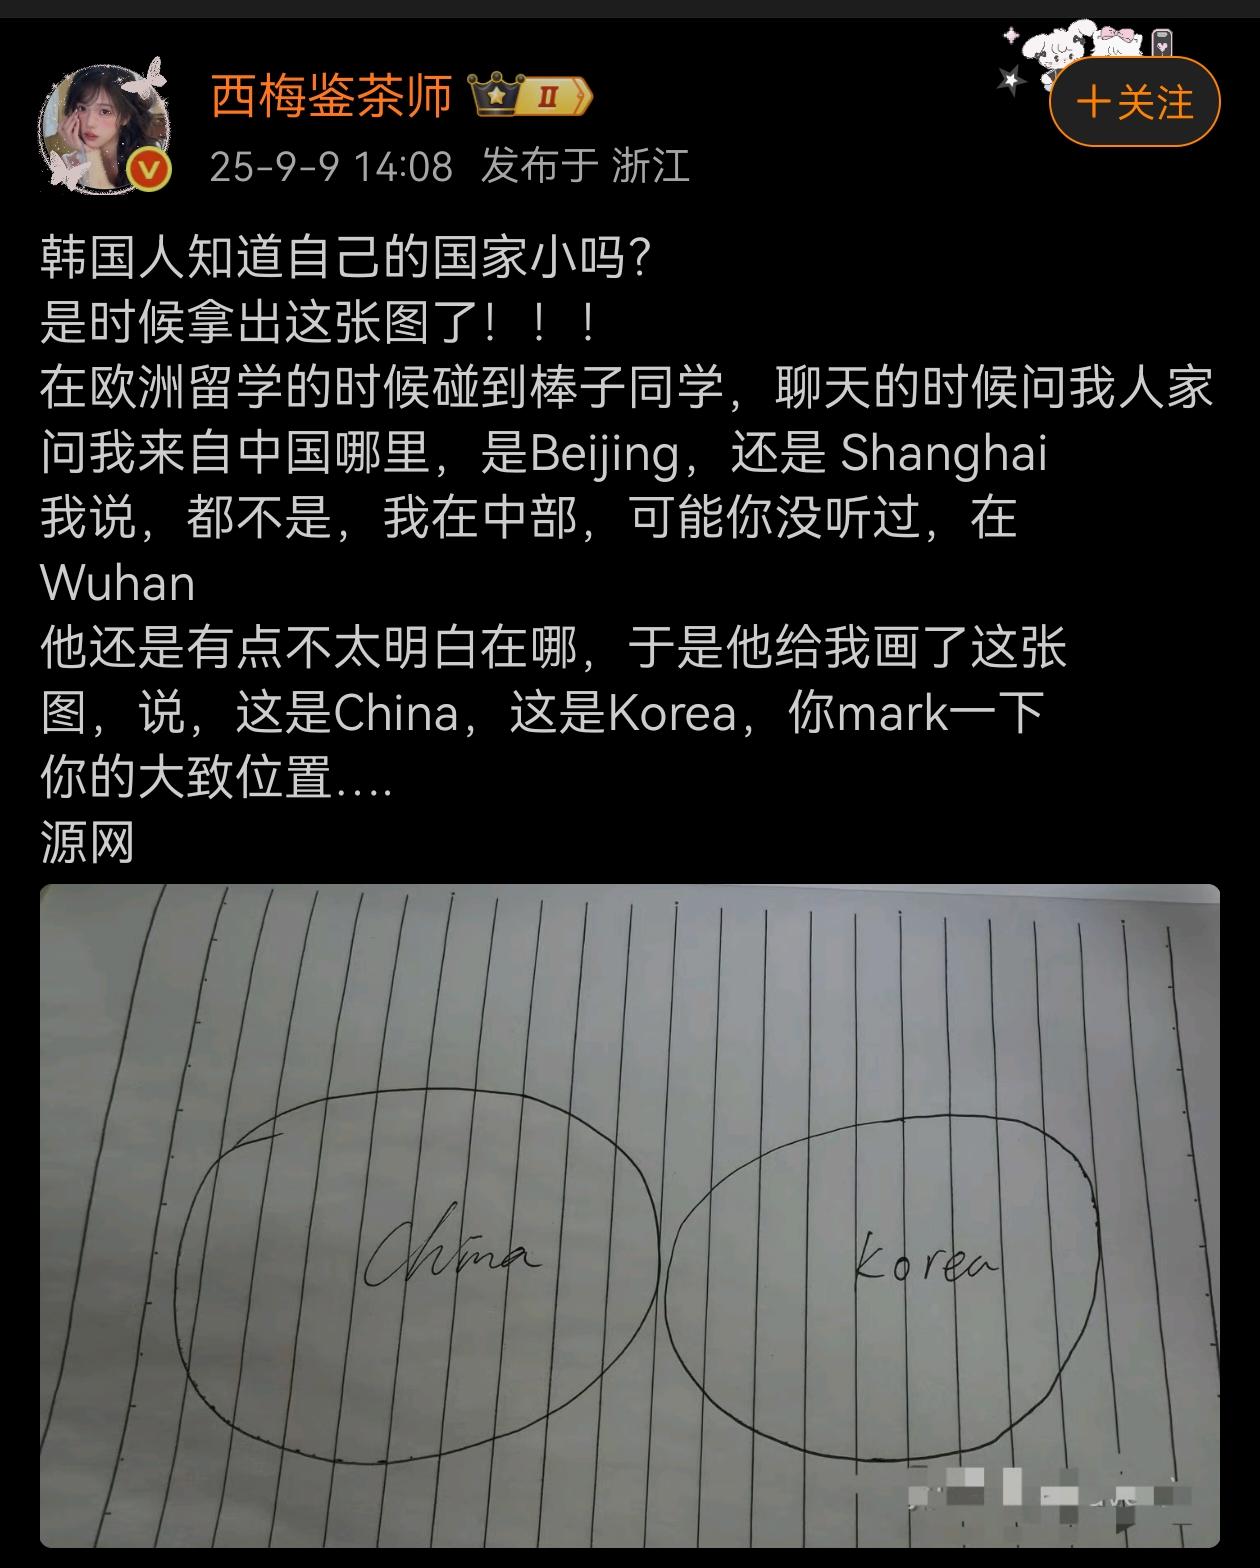 西梅鉴茶师
II
+关注
25-9-9 14:08 发布于 浙江
韩国人知道自己的国家小吗？
是时候拿出这张图了！！！
在欧洲留学的时候碰到棒子同学，聊天的时候问我人家
问我来自中国哪里，是Beijing，还是 Shanghai
我说，都不是，我在中部，可能你没听过，在
Wuhan
他还是有点不太明白在哪，于是他给我画了这张
图，说，这是China，这是Korea，你mark一下
你的大致位置....
源网
China
Korea